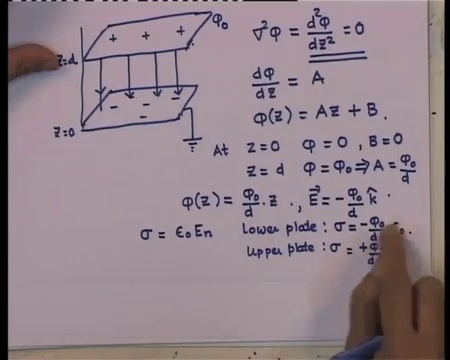 φ₀
+ + +
z=d
- - - -
z=0
∇²φ = d²φ/dz² = 0
dφ/dz = A
φ(z) = Az + B.
At z=0 φ=0, B=0
z=d φ=φ₀ ⇒ A = φ₀/d
φ(z) = φ₀/d · z , E⃗ = -φ₀/d k̂ .
σ = ε₀En Lower plate : σ = -φ₀/d
Upper plate : σ = +φ₀/d